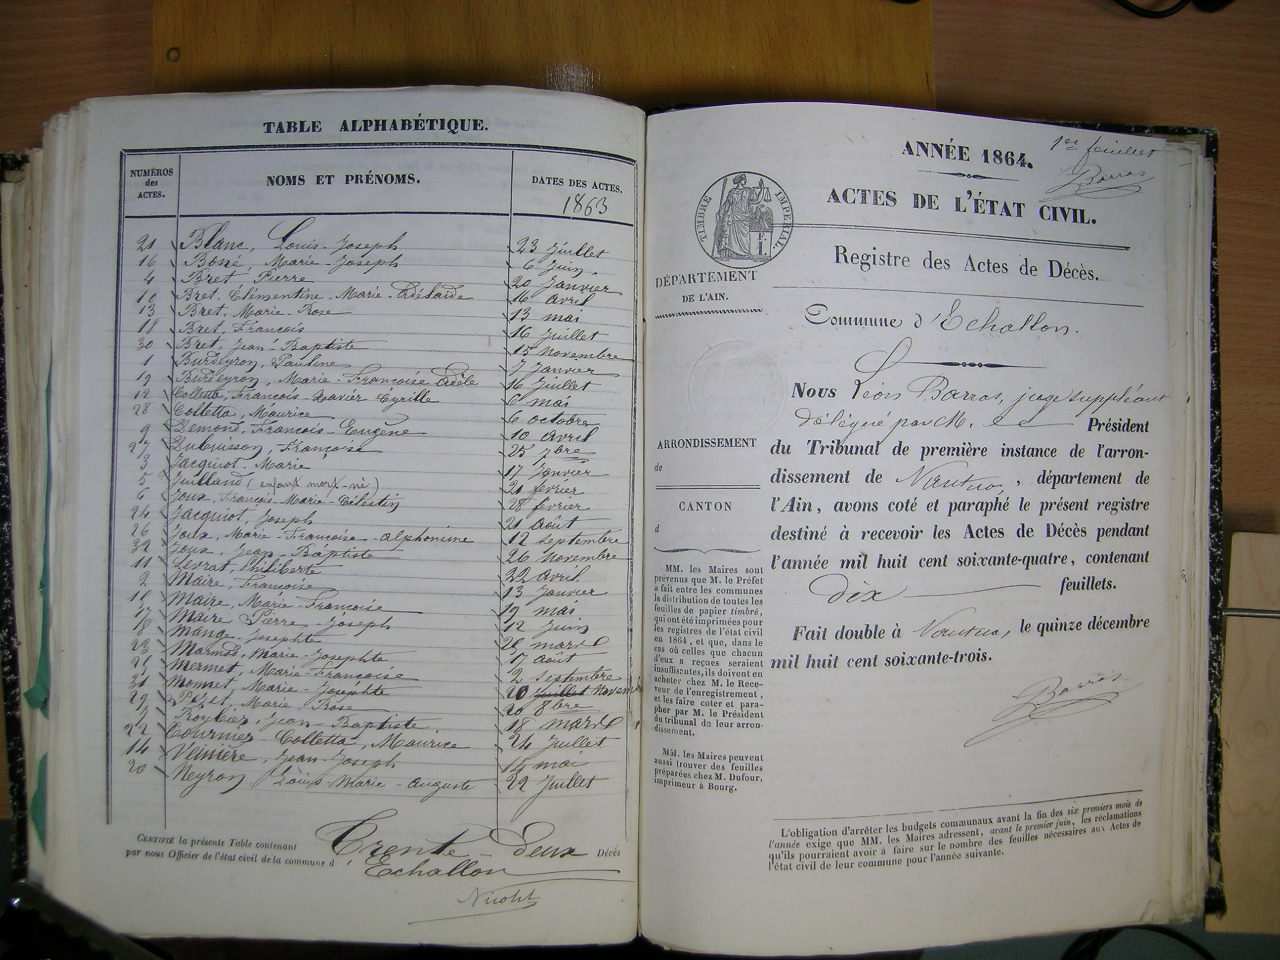 TABLE ALPHABÉTIQUE.
NUMÉROS des ACTES.
NOMS ET PRÉNOMS.
DATES DES ACTES.
1863
21 Blanc, Louis-Joseph 23 Juillet
16 Boné, Marie-Joseph 6 Juin
4 Bret Pierre 20 Janvier
10 Bret, Clémentine-Marie-Adélaïde 16 avril
13 Bret, Marie-Rose 13 mai
18 Bret, François 16 Juillet
30 Bret, Jean-Baptiste 15 Novembre
1 Burdeyron, Pauline 7 Janvier
19 Burdeyron, Marie-Françoise Adèle 16 Juillet
12 Colletta, François-Xavier Cyrille 6 mai
28 Colletta, Maurice 6 octobre
9 Demond, François-Eugène 10 avril
27 Dubuisson, Françoise 25 7bre
3 Jacquiot, Marie 17 Janvier
5 Juilland (enfant mort-né) 21 février
6 Joux, François-Marie-Célestin 28 février
24 Jacquiot, Joseph 21 août
26 Joux, Marie-Françoise-alphonsine 12 septembre
32 Joux, Jean-Baptiste 26 Novembre
11 Levrat, Philiberte 22 avril
2 Maire, Françoise 13 Janvier
Maire, Marie-Françoise 19 mai
17 Maire Pierre-Joseph 12 Juin
8 Mange, Josephte mars
23 Marmod, Marie-Josephte 17 août
25 Mermet, Marie-Françoise 2 septembre
31 Monnet, Marie-Josephte 20 Juillet Novembre
29 Marie-Rose 20 8bre
7 Jean-Baptiste 18 mars
22 Tournier Colletta, Maurice 24 Juillet
14 Veinière, Jean-Joseph 15 mai
20 Neyron Louis-Marie-Auguste 22 Juillet
CERTIFIÉ la présente Table contenant Trente-Deux Décès
par nous Officier de l'état civil de la commune d'Echallon
1er feuillet
Barras
ANNÉE 1864.
ACTES DE L'ÉTAT CIVIL.
TIMBRE IMPÉRIAL.
Registre des Actes de Décès.
DÉPARTEMENT
DE L'AIN.
Commune d'Echallon.
Nous Léon Barras, juge suppléant
délégué par M. Président
du Tribunal de première instance de l'arron-
dissement de Nantua, département de
l'Ain, avons coté et paraphé le présent registre
destiné à recevoir les Actes de Décès pendant
l'année mil huit cent soixante-quatre, contenant
dix feuillets.
Fait double à Nantua, le quinze décembre
mil huit cent soixante-trois.
Barras
ARRONDISSEMENT
de
CANTON
d
MM. les Maires sont
prévenus que M. le Préfet
a fait entre les communes
la distribution de toutes les
feuilles de papier timbré,
qui ont été imprimées pour
les registres de l'état civil
en 1864, et que, dans le
cas où celles que chacun
d'eux a reçues seraient
insuffisantes, ils doivent en
acheter chez M. le Rece-
veur de l'enregistrement,
et les faire coter et para-
pher par M. le Président
du tribunal de leur arron-
dissement.
MM. les Maires peuvent
aussi trouver des feuilles
préparées chez M. Dufour,
imprimeur à Bourg.
L'obligation d'arrêter les budgets communaux avant la fin des six premiers mois de
l'année exige que MM. les Maires adressent, avant le premier juin, les réclamations
qu'ils pourraient avoir à faire sur le nombre des feuilles nécessaires aux Actes de
l'état civil de leur commune pour l'année suivante.